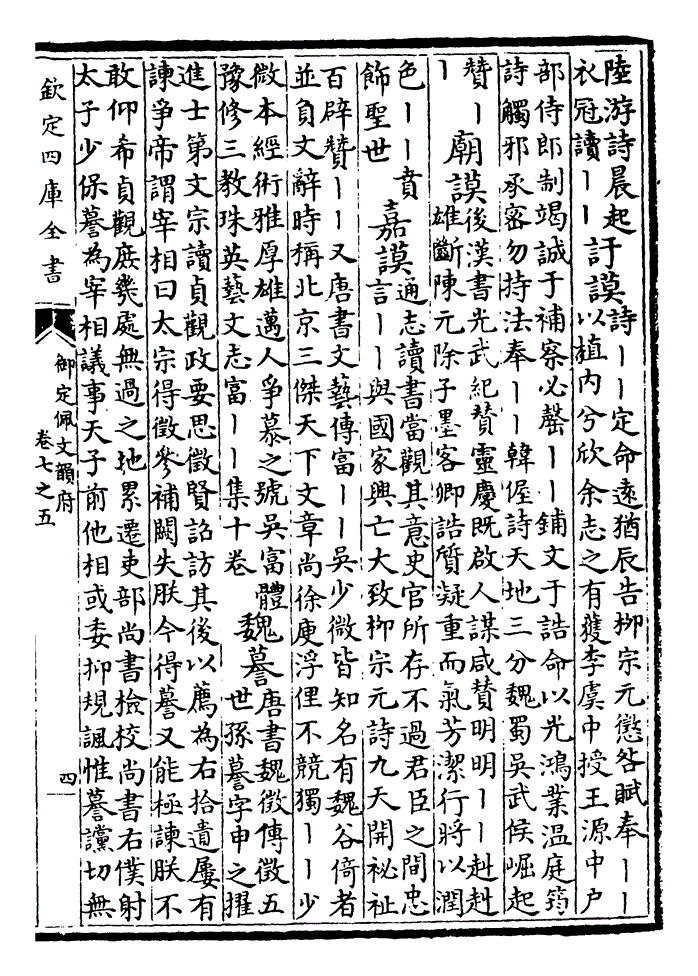 陸游詩晨起
衣冠讀｜｜
訏謨
詩｜｜定命遠猶辰告栁宗元懲咎賦奉｜｜
以植内兮欣余志之有獲李虞中授王源中户
部侍郎制竭誠于補察必罄｜｜鋪文于誥命以光鴻業温庭筠
詩觸邪承密勿持法奉｜｜韓偓詩天地三分魏蜀吳武候崛起
贊｜
｜
廟謨
後漢書光武紀贊靈慶既啟人謀咸贊明明｜｜赳赳
雄斷陳元除子墨客卿誥質疑重而氣芳潔行將以潤
色｜｜賁
飾聖世
嘉謨
通志讀書當觀其意史官所存不過君臣之間忠
言｜｜與國家興亡大致栁宗元詩九天開祕祉
百辟贊｜｜又唐書文藝傳富｜｜吳少微皆知名有魏谷倚者
並負文辭時稱北京三傑天下文章尚徐庾浮俚不競獨｜｜少
微本經術雅厚雄邁人爭慕之號吳富體
豫修三教珠英藝文志富｜｜集十卷
魏謩
唐書魏徵傳徵五
世孫謩字申之擢
進士第文宗讀貞觀政要思徵賢詔訪其後以薦為右拾遺屢有
諫爭帝謂宰相曰太宗得徵參補闕失朕今得謩又能極諫朕不
敢仰希貞觀庶幾處無過之地累遷吏部尚書檢校尚書右僕射
太子少保謩為宰相議事天子前他相或委抑規諷惟謩讜切無
欽定四庫全書
御定佩文韻府
卷七之五
四